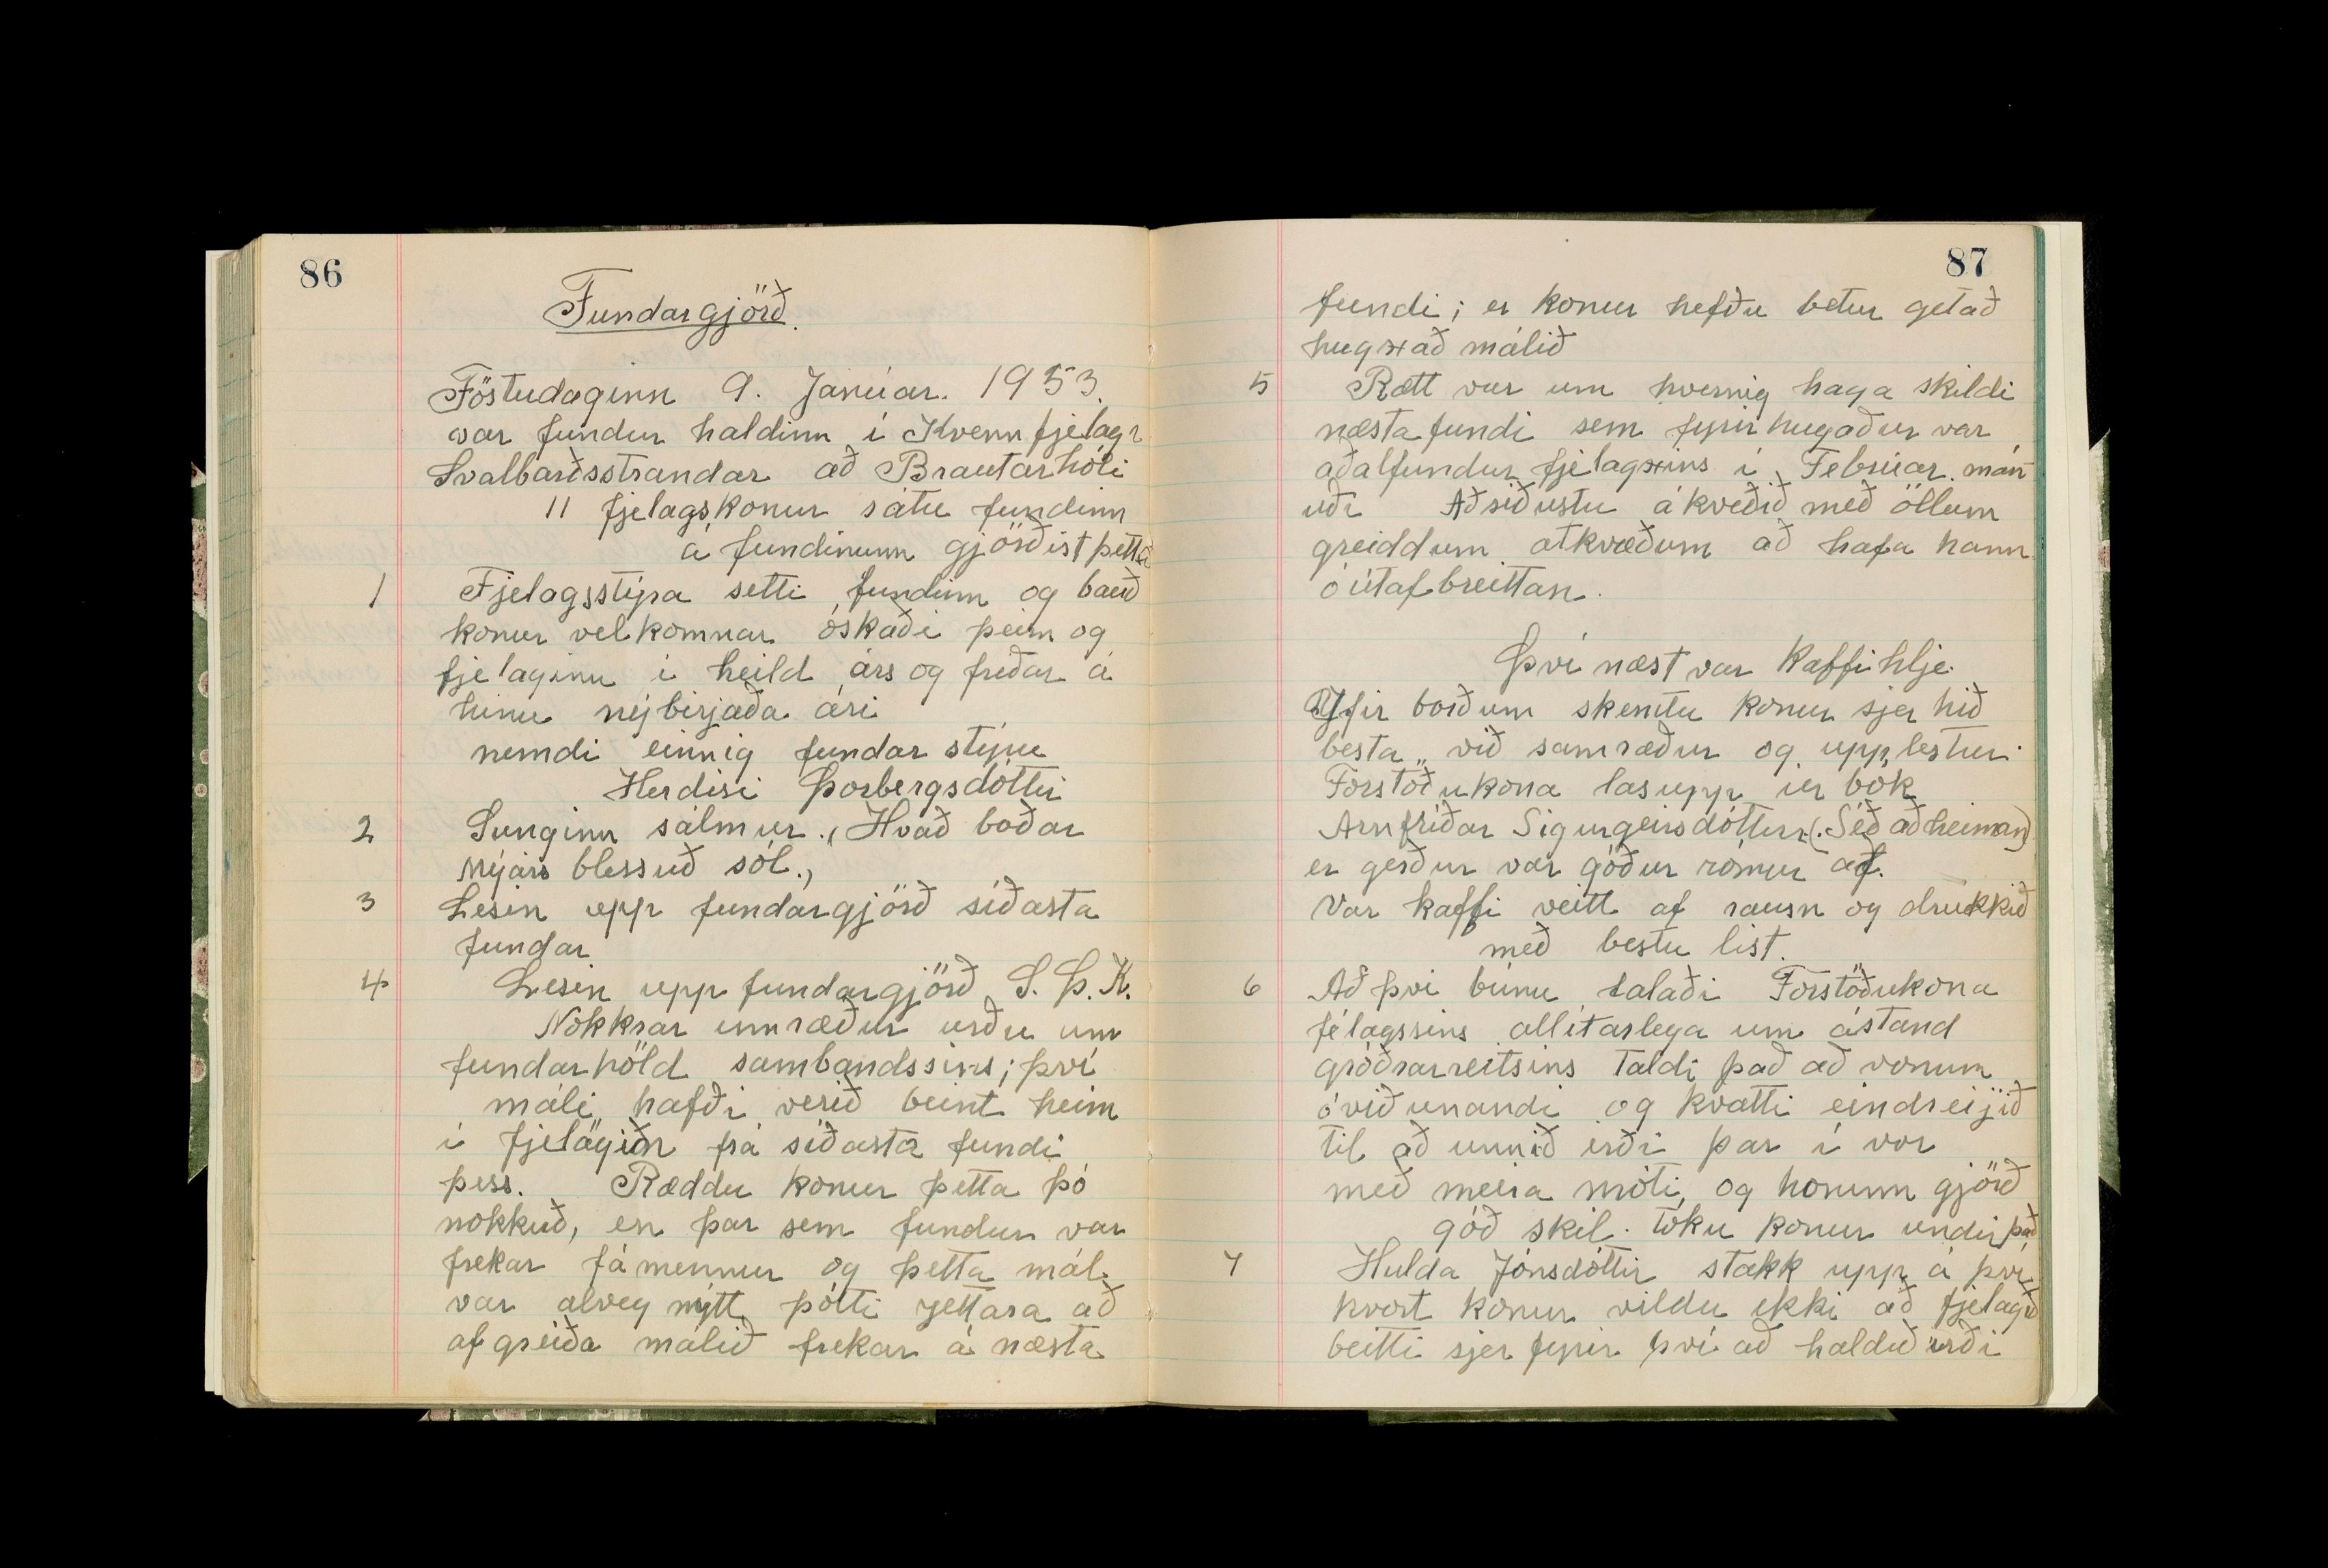 86
Fundargjörð.
Föstudaginn 9. Janúar. 1953.
var fundur haldinn í Kvennfjelagi
Svalbarðsstrandar að Brautarhóli
11 fjelagskonur sátu fundinn
á fundinum gjörðist þetta
1 Fjelagsstýra setti fundinn og bauð
konur velkomnar óskaði þeim og
fjelaginu í heild árs og friðar á
hinu nýbirjaða ári
nemdi einnig fundar stýru
Herdísi Þorbergsdóttir
2 Sunginn sálmur. „Hvað boðar
Nýárs blessuð sól.„
3 Lesin upp fundargjörð síðasta
fundar
4 Lesin upp fundargjörð S. Þ. K.
Nokkrar umræður urðu um
fundarhöld sambandssins; því
máli hafði verið beint heim
í fjelögin frá síðasta fundi
þess. Ræddu konur þetta þó
nokkuð, en þar sem fundur var
frekar fámennur og þetta mál
var alveg nýtt þótti rjettara að
afgreiða málið frekar á næsta
87
fundi; er konur hefðu betur getað
hugað málið
5 Rætt var um hvernig haga skildi
næsta fundi sem fyrirhugaður var
aðalfundur fjelagsins í Febrúar mán
uði Að síðustu ákveðið með öllum
greiddum atkvæðum að hafa hann
óútafbreittan.
Því næst var Kaffihlje.
Yfir borðum skemtu konur sjer hið
besta við samræður og upplestur.
Forstöðukona las upp úr bók
Arnfríðar Sigurgeirsdóttur (Séð að heiman)
er gerður var góður rómur að.
Var kaffi veitt af rausn og drukkið
með bestu list.
6 Að því búnu talaði Forstöðukona
félagssins allítarlega um ástand
gróðrarreitsins Taldi það að vonum
óviðunandi og kvatti eindreijið
til að unnið irði þar í vor
með meira móti, og honum gjörð
góð skil. Tóku konur undir það
7 Hulda Jónsdóttir stakk upp á því
hvort konur vildu ekki að fjelagið
beitti sjer fyrir því að haldið urði